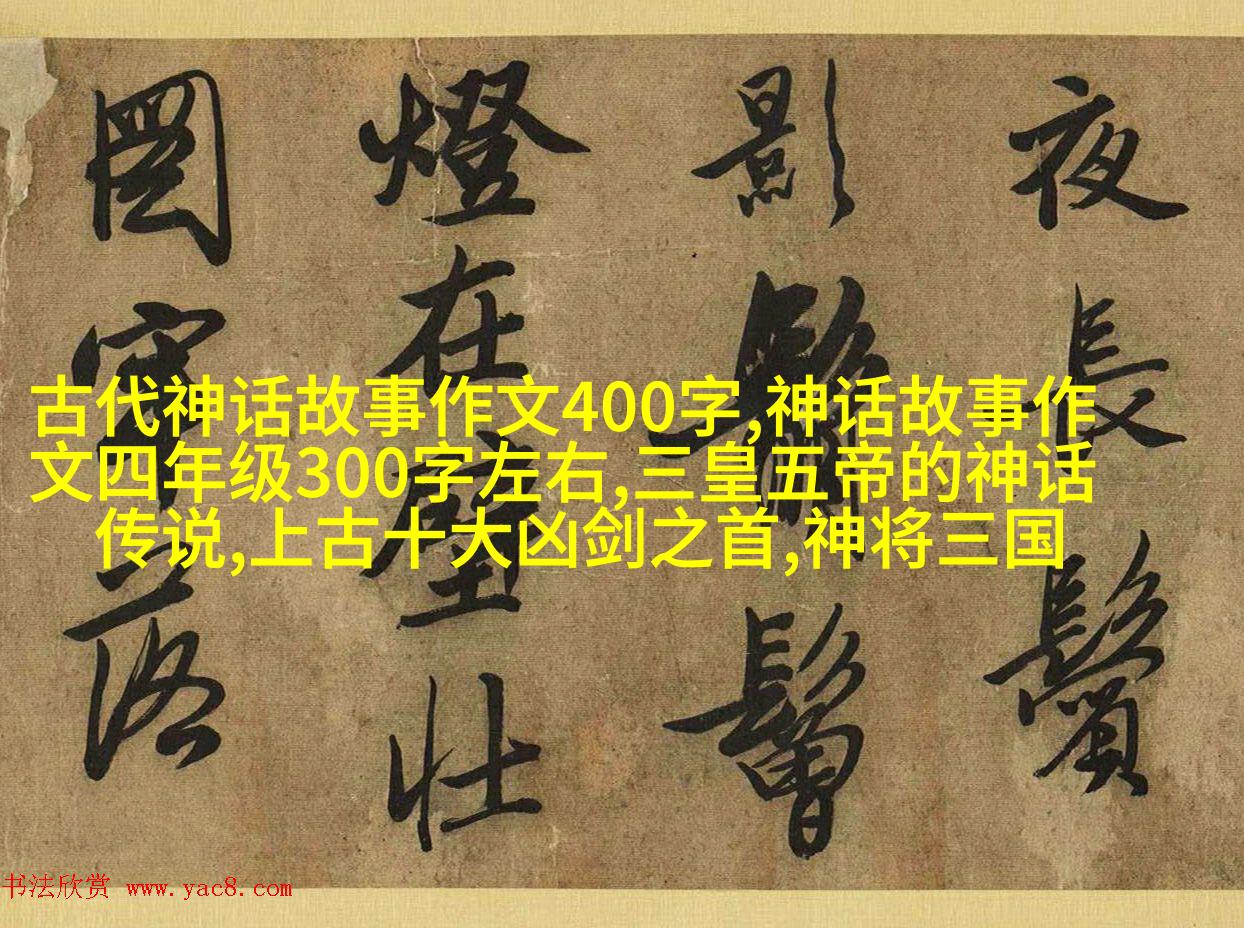 夜長鬢
影鬙
燈在壁壯
圖寥落
古代神话故事作文400字,神话故事作
文四年级300字左右,三皇五帝的神话
传说,上古十大凶剑之首,神将三国
书法欣赏 www.yac8.com